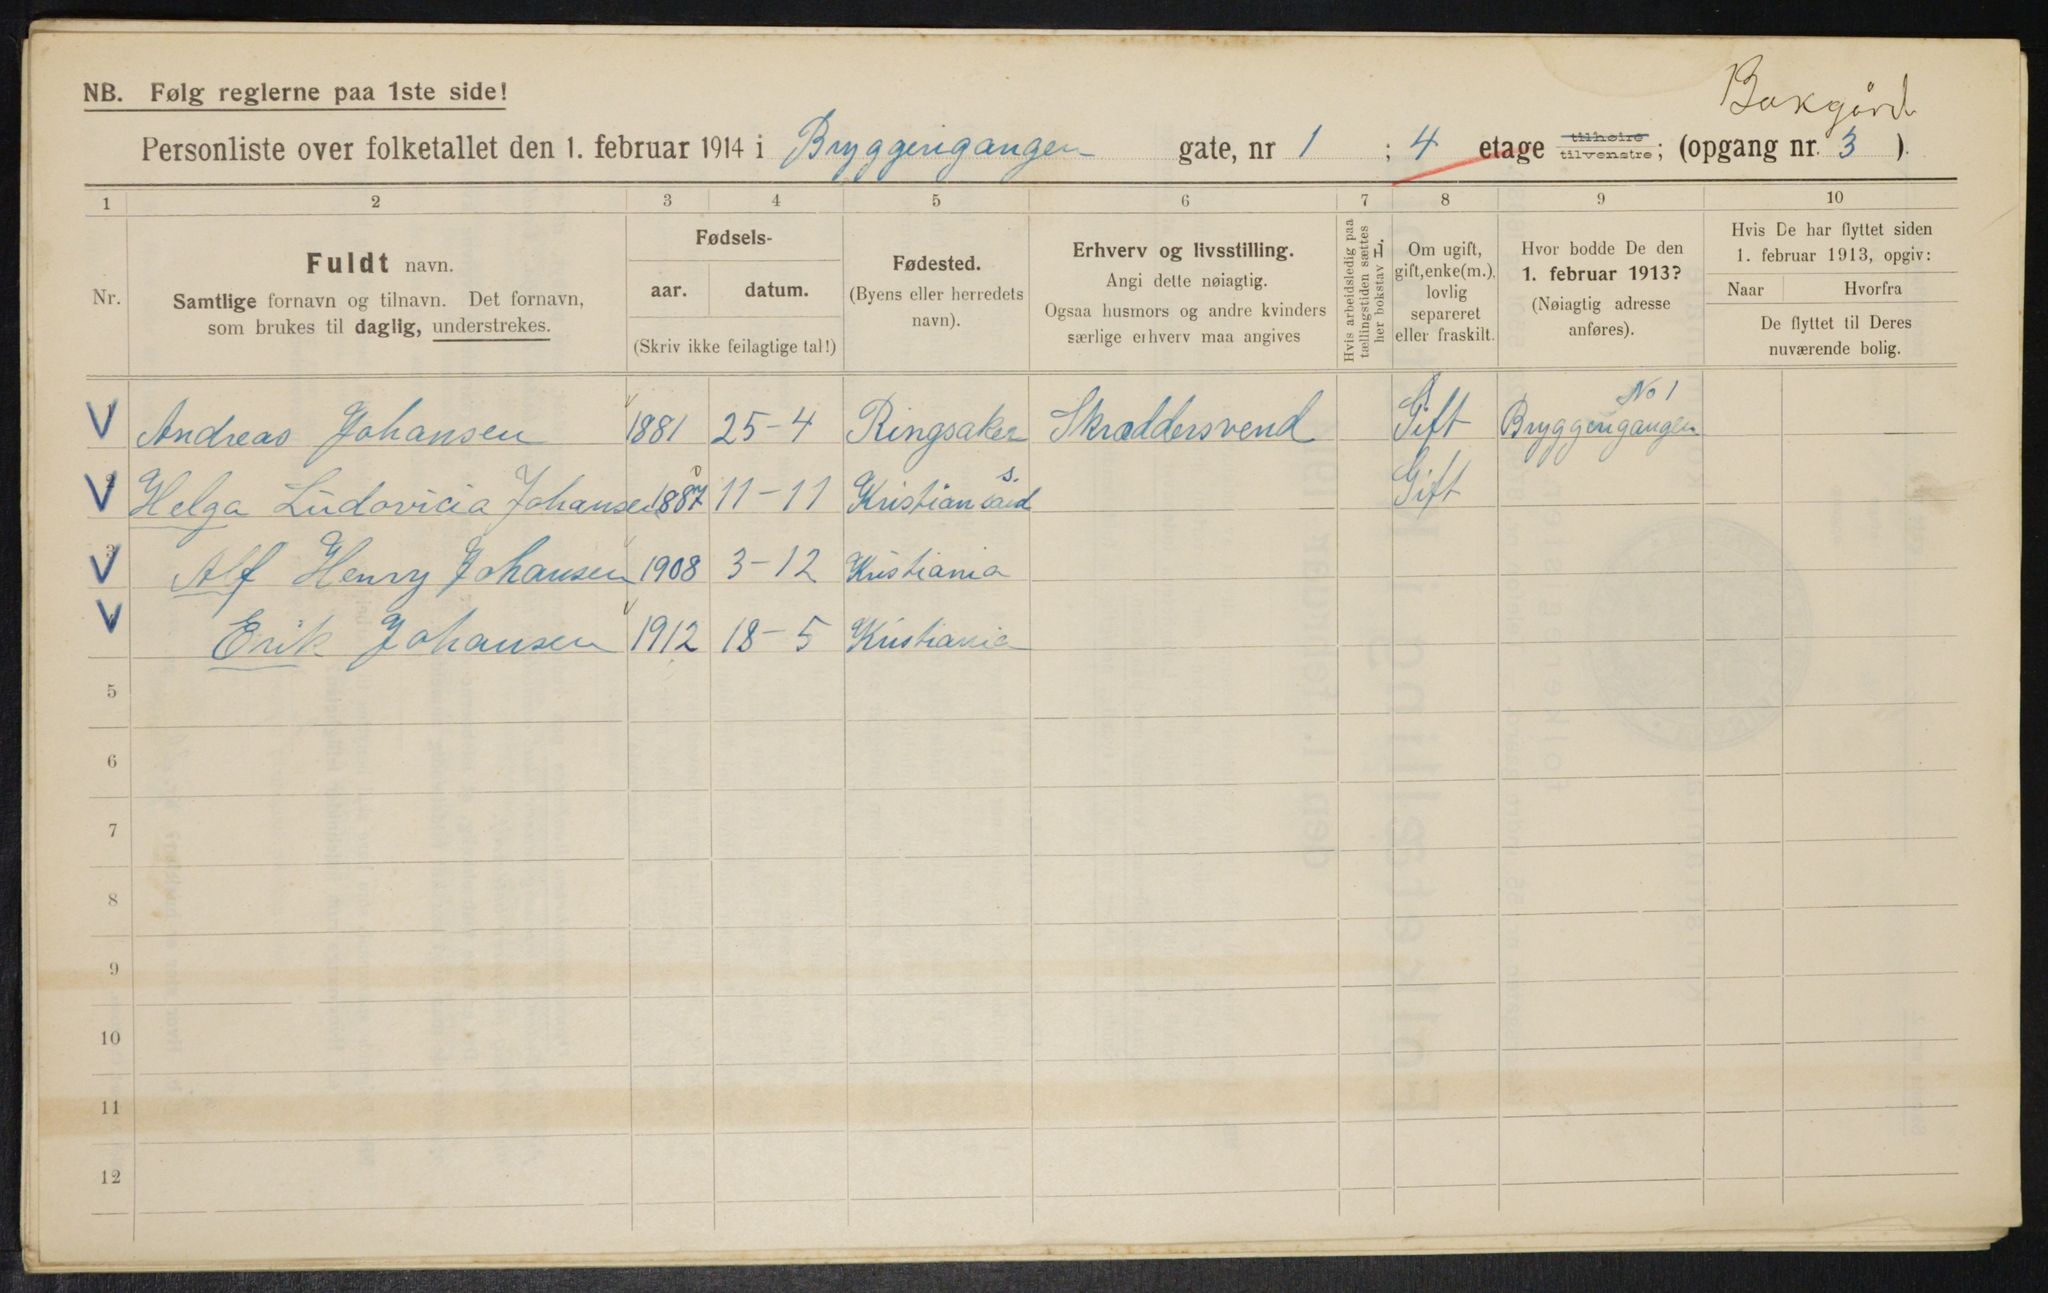 Bakgård
NB. Følg reglerne paa 1ste side!
Personliste over folketallet den 1. februar 1914 i Bryggerigangen gate, nr 1 ; 4 etage tilhøire tilvenstre; (opgang nr. 3 ).
1 2 3 4 5 6 7 8 9 10
Nr.
Fuldt navn.
Samtlige fornavn og tilnavn. Det fornavn,
som brukes til daglig, understrekes.
Fødsels-
aar. datum.
(Skriv ikke feilagtige tal!)
Fødested.
(Byens eller herredets
navn).
Erhverv og livsstilling.
Angi dette nøiagtig.
Ogsaa husmors og andre kvinders
særlige erhverv maa angives
Hvis arbeidsledig paa
tællingstiden sættes
her bokstav L.
Om ugift,
gift, enke(m.),
lovlig
separeret
eller fraskilt.
Hvor bodde De den
1. februar 1913?
(Nøiagtig adresse
anføres).
Hvis De har flyttet siden
1. februar 1913, opgiv:
Naar Hvorfra
De flyttet til Deres
nuværende bolig.
No 1
Andreas Johansen 1881 25-4 Ringsaker Skræddersvend Gift Bryggerigangen
Helga Ludovicia Johansen 1887 11-11 Kristiansand S. Gift
Alf Henry Johansen 1908 3-12 Kristiania
Erik Johansen 1912 18-5 Kristiania
5
6
7
8
9
10
11
12